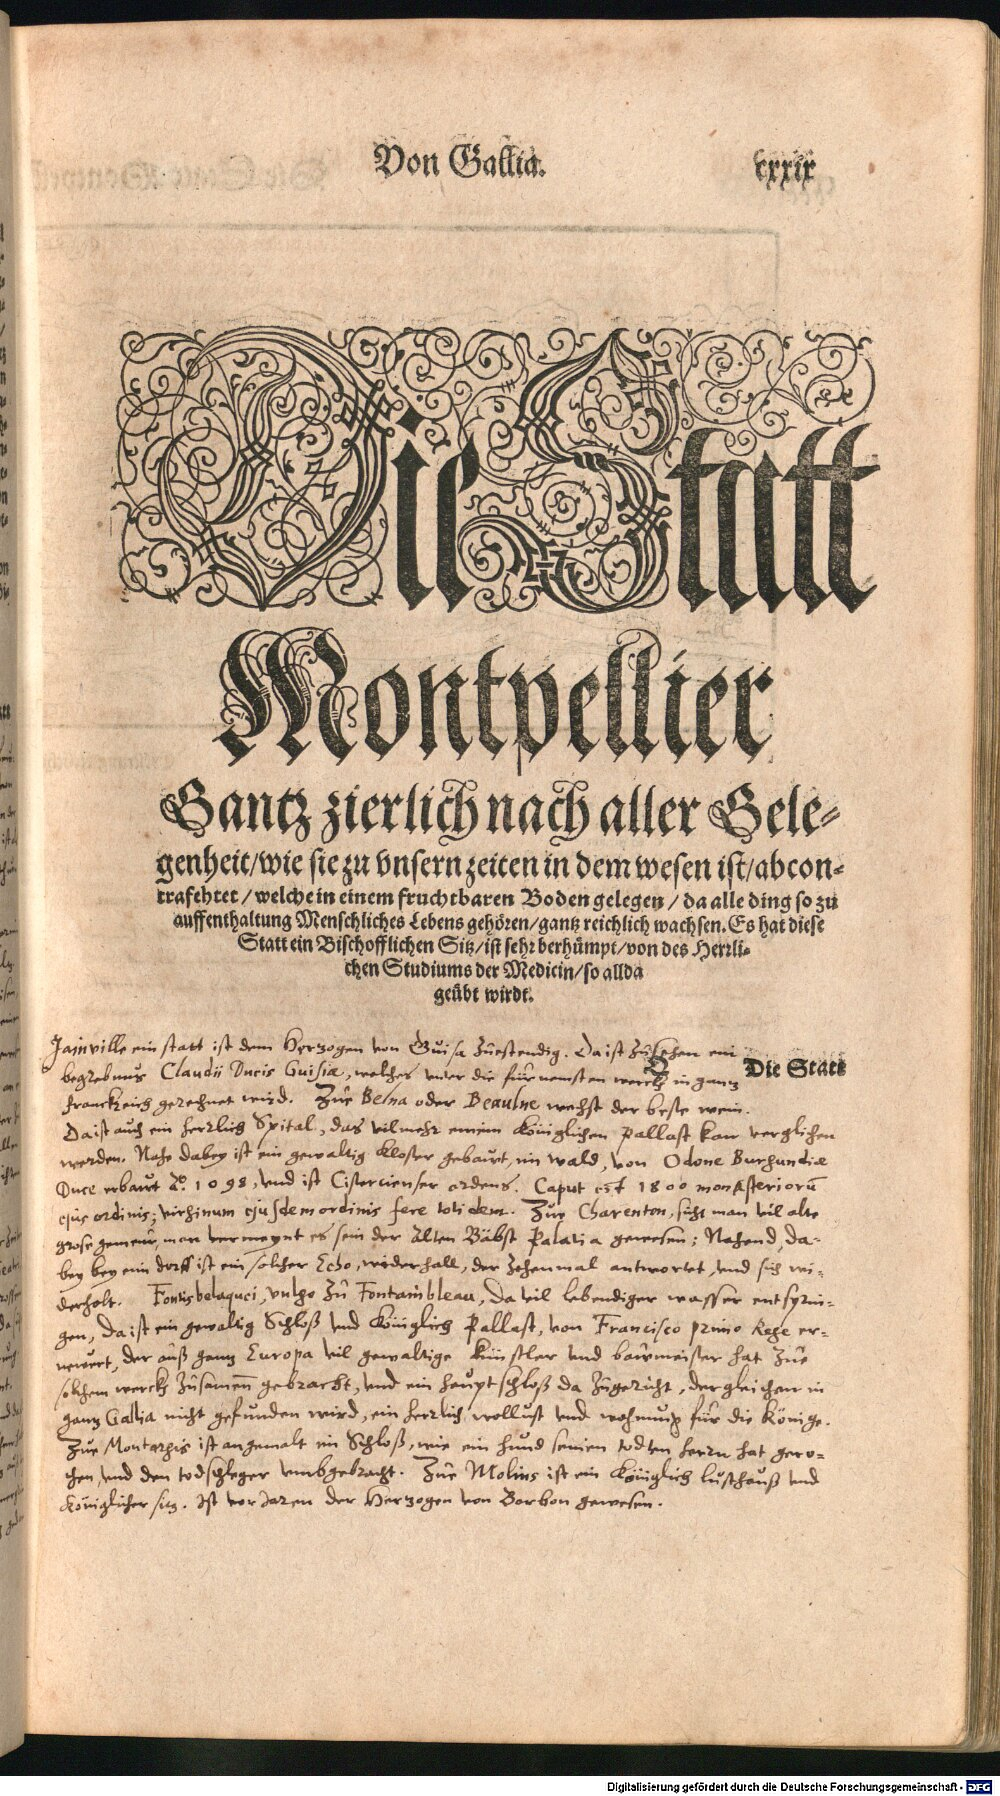 Von Gallia.
cxxix
Die Statt
Montpellier
Gantz zierlich nach aller Gele-
genheit/wie sie zu vnsern zeiten in dem wesen ist/abcon-
trafehtet/welche in einem fruchtbaren Boden gelegen/da alle ding so zu
auffenthaltung Menschliches Lebens gehören/gantz reichlich wachsen. Es hat diese
Statt ein Bischofflichen Sitz/ist sehr berhümpt/von des Herrli-
chen Studiums der Medicin/so allda
geübt wirdt.
Jainville ein statt ist dem Hertzogen von Guisa zůestendig. Da ist zů sehen ein
begrebnus Claudii Ducis Guisiæ, welches vnter die fürnemsten werck in gantz
Q
Die Statt
franckreich gerechnet wird. Zůe Belna oder Beaulne wechst der beste wein.
Da ist auch ein herrlich Spital, das vil mehr einem Königlichen pallast kan verglichen
werden. Nahe dabey ist ein gewaltig kloster gebawt, im wald, von Odone Burgundiæ
Duce erbawt Aº. 1098, vnd ist Cistercienser ordens. Caput est 1800 monasteriorũ
ejus ordinis; virginum ejusdem ordinis fere totidem. Zůe Charenton, siht man vil alte
grose gemeur, man vermeynt es sein der Alten Bäbst Palatia gewesen; Nahend da-
bey bey eim dorff ist ein solcher Echo, widerhall, der Zehenmal antwortet, vnd sich wi-
derholt. Fontisbelaquei, vulgo Zů Fontainbleau, da vil lebendiger wasser entsprin-
gen, da ist ein gewaltig Schloß vnd Königlich Pallast, von Francisco primo Rege er-
newert, der auß gantz Europa vil gewaltige künstler vnd bawmeister hat Zůe
solchem werck Zůsamen gebracht, vnd ein hauptschloß da zůgericht, dergleichen in
gantz Gallia nicht gefunden wird, ein herrlich wollust vnd wohnung für die Könige.
Zůe Montargis ist angemalt im Schloß, wie ein hund seinen todten herrn hat gero-
chen, vnd den todschleger vmbgebracht. Zůe Molins ist ein Königlich lusthauß vnd
Königlicher sitz. Ist vor Jaren der Hertzogen von Borbon gewesen.
Digitalisierung gefördert durch die Deutsche Forschungsgemeinschaft - DFG